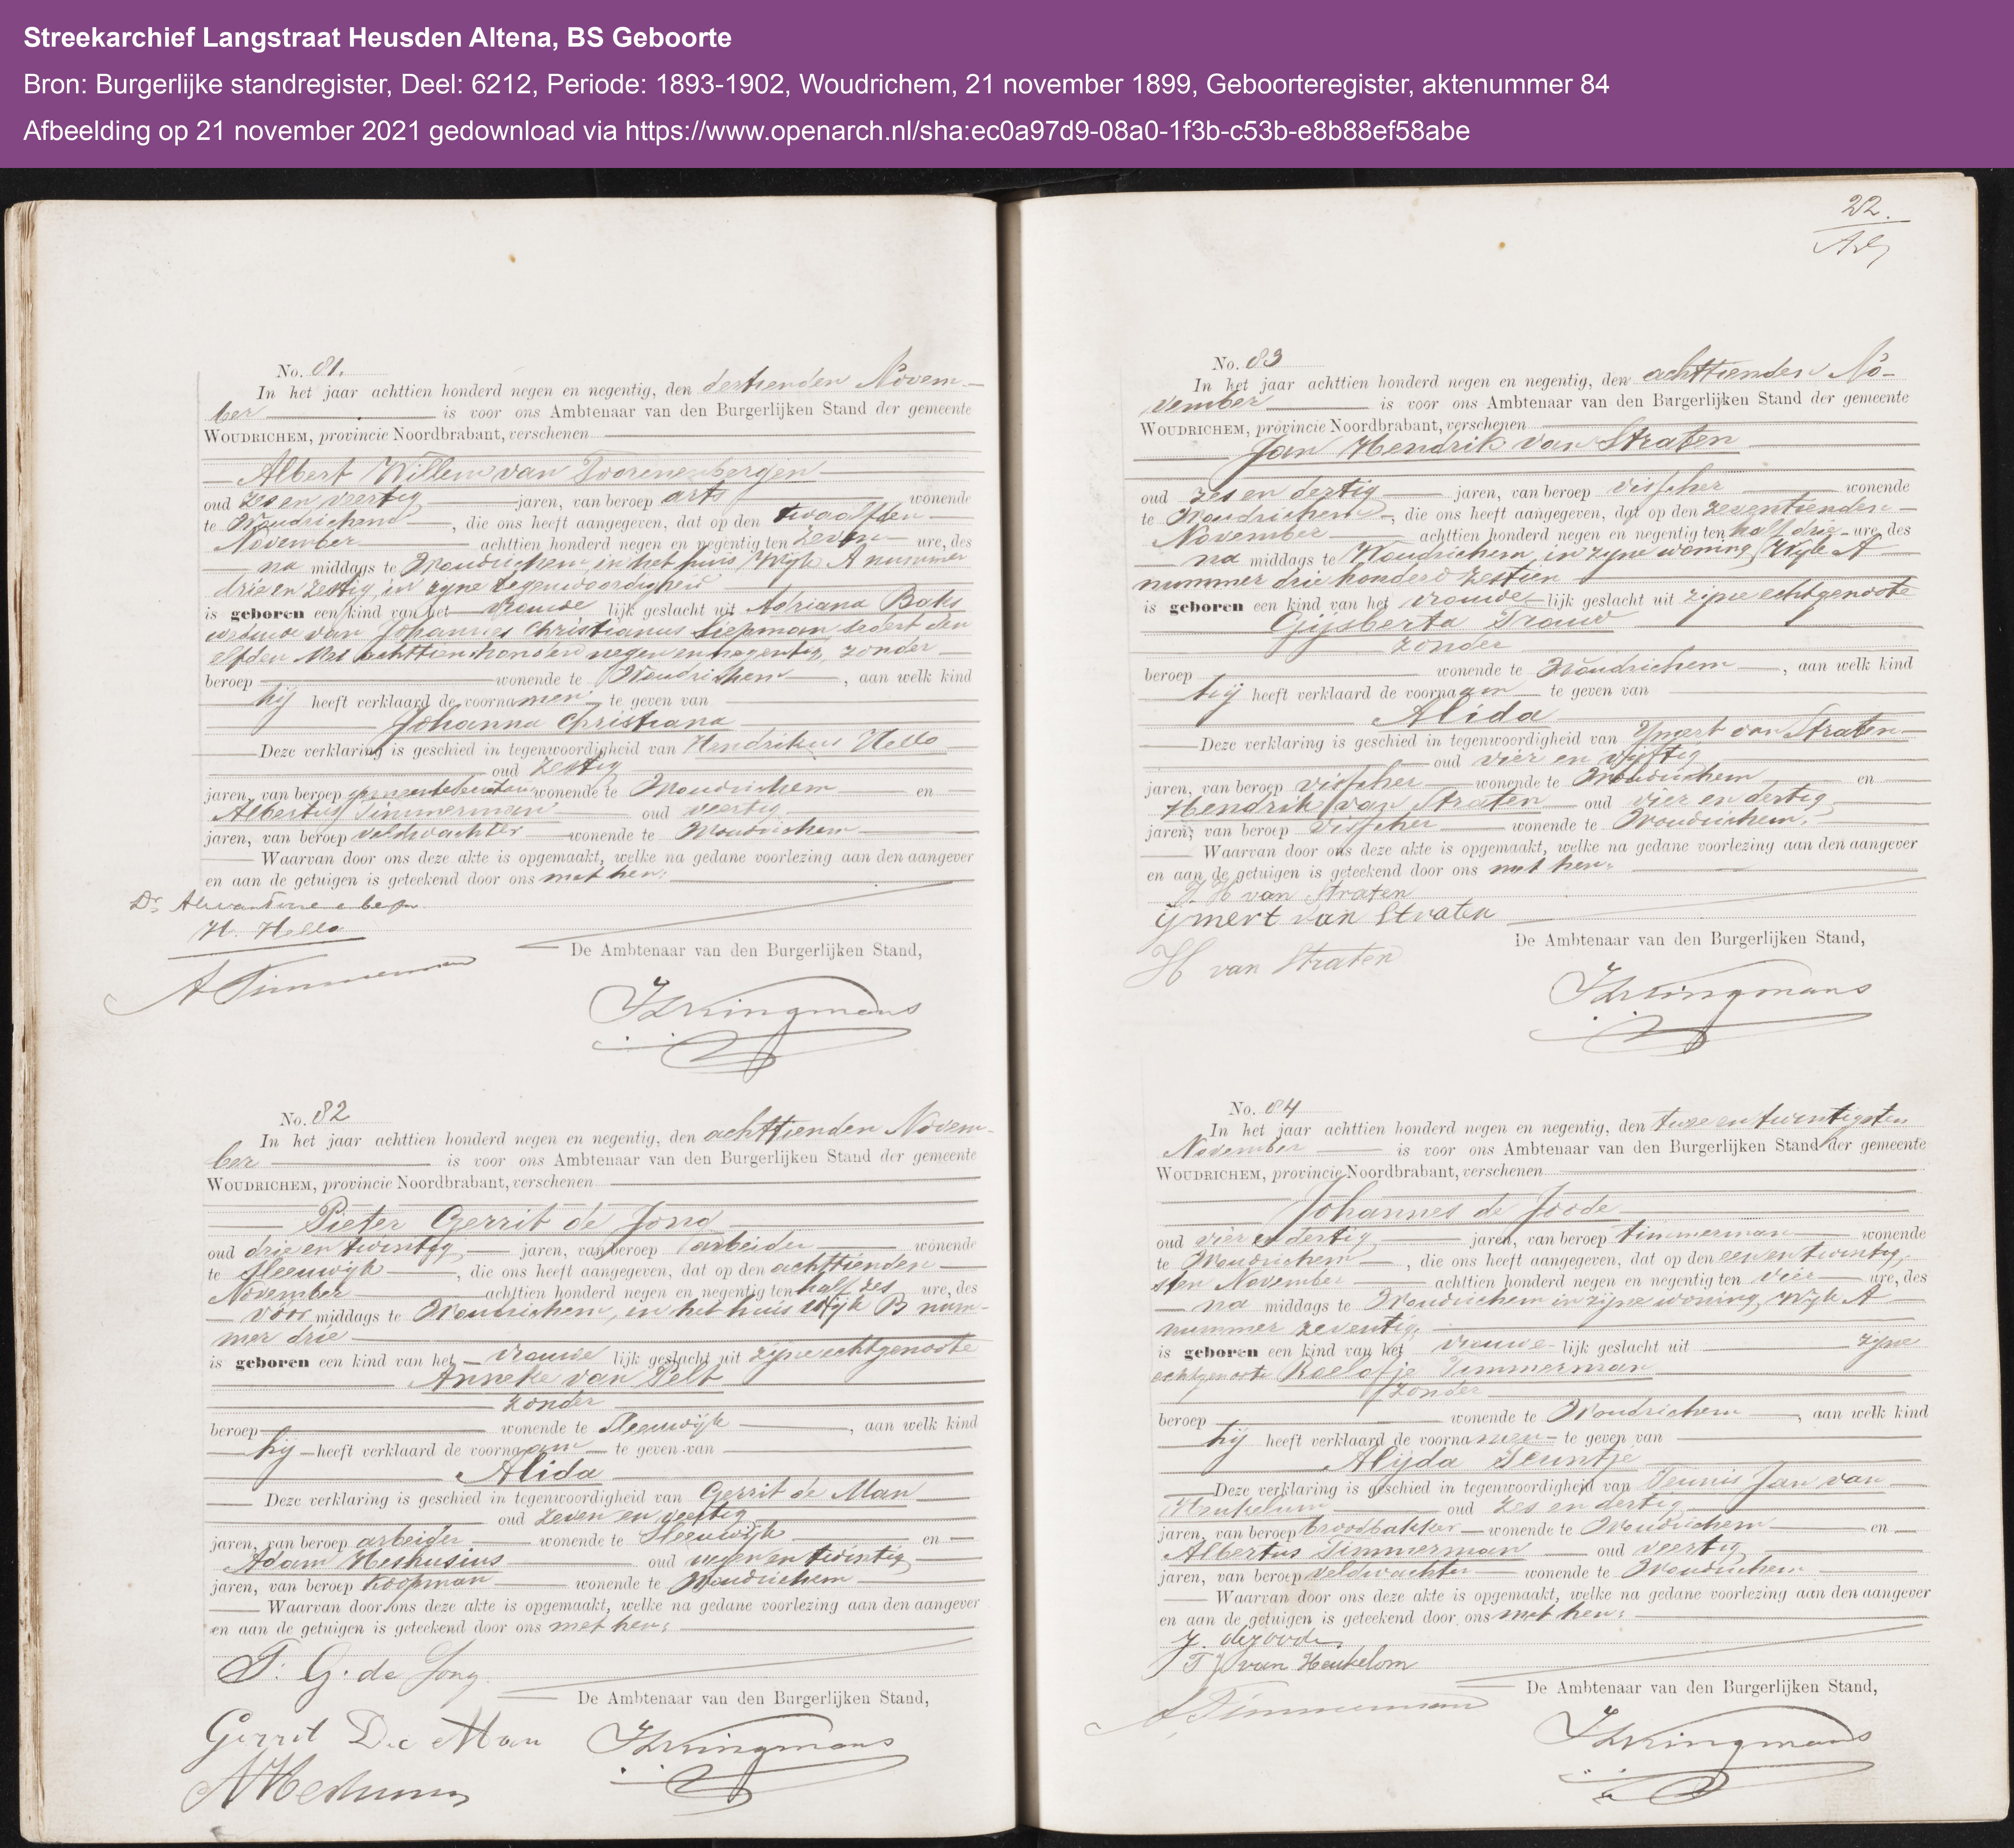 Streekarchief Langstraat Heusden Altena, BS Geboorte
Bron: Burgerlijke standregister, Deel: 6212, Periode: 1893-1902, Woudrichem, 21 november 1899, Geboorteregister, aktenummer 84
Afbeelding op 21 november 2021 gedownload via https://www.openarch.nl/sha:ec0a97d9-08a0-1f3b-c53b-e8b88ef58abe
No. 81.
In het jaar achttien honderd negen en negentig, den dertienden Novem-
ber is voor ons Ambtenaar van den Burgerlijken Stand der gemeente
WOUDRICHEM, provincie Noordbrabant, verschenen
Albert Willem van Toorenenbergen
oud zes en veertig jaren, van beroep arts wonende
te Woudrichem, die ons heeft aangegeven, dat op den twaalfden
November achttien honderd negen en negentig ten zeven ure, des
na middags te Woudrichem, in het huis Wijk A nummer
drie en zestig, in zyne tegenwoordigheid
is geboren een kind van het vrouwe lijk geslacht uit Adriana Baks
weduwe van Johannes Christianus Siepman, sedert den
elfden Mei achttien honderd negen en negentig, zonder
beroep wonende te Woudrichem, aan welk kind
hij heeft verklaard de voornamen te geven van
Johanna Christiana
Deze verklaring is geschied in tegenwoordigheid van Hendrikus Hello
oud zestig
jaren, van beroep wonende te Woudrichem en
Albertus Timmerman oud veertig
jaren, van beroep veldwachter wonende te Woudrichem
Waarvan door ons deze akte is opgemaakt, welke na gedane voorlezing aan den aangever
en aan de getuigen is geteekend door ons met hen:
Dr.
H. Hello
A Timmerman
De Ambtenaar van den Burgerlijken Stand,
No. 82
In het jaar achttien honderd negen en negentig, den achttienden Novem-
ber is voor ons Ambtenaar van den Burgerlijken Stand der gemeente
WOUDRICHEM, provincie Noordbrabant, verschenen
Pieter Gerrit de Jong
oud drie en twintig jaren, van beroep arbeider wonende
te Sleeuwijk, die ons heeft aangegeven, dat op den achttienden
November achttien honderd negen en negentig ten half zes ure, des
vóór middags te Woudrichem, in het huis Wijk B num-
mer drie
is geboren een kind van het vrouwe lijk geslacht uit zijne echtgenoote
Anneke van Pelt
zonder
beroep wonende te Sleeuwijk, aan welk kind
hij heeft verklaard de voornaam te geven van
Alida
Deze verklaring is geschied in tegenwoordigheid van Gerrit de Man
oud zeven en veertig
jaren, van beroep arbeider wonende te Sleeuwijk en
Adam Heshusius oud negen en twintig
jaren, van beroep koopman wonende te Woudrichem
Waarvan door ons deze akte is opgemaakt, welke na gedane voorlezing aan den aangever
en aan de getuigen is geteekend door ons met hen:
P. G. de Jong
De Ambtenaar van den Burgerlijken Stand,
Gerrit De Man
22.
No. 83
In het jaar achttien honderd negen en negentig, den achttienden No-
vember is voor ons Ambtenaar van den Burgerlijken Stand der gemeente
WOUDRICHEM, provincie Noordbrabant, verschenen
Jan Hendrik van Straten
oud zes en dertig jaren, van beroep visscher wonende
te Woudrichem, die ons heeft aangegeven, dat op den zeventienden
November achttien honderd negen en negentig ten half drie ure, des
na middags te Woudrichem, in zyne woning, Wyk A
nummer drie honderd zestien
is geboren een kind van het vrouwe lijk geslacht uit zijne echtgenoote
Gijsberta Trouw
zonder
beroep wonende te Woudrichem, aan welk kind
hij heeft verklaard de voornaam te geven van
Alida
Deze verklaring is geschied in tegenwoordigheid van Ymert van Straten
oud vier en vijftig
jaren, van beroep visscher wonende te Woudrichem en
Hendrik van Straten oud vier en dertig
jaren, van beroep visscher wonende te Woudrichem.
Waarvan door ons deze akte is opgemaakt, welke na gedane voorlezing aan den aangever
en aan de getuigen is geteekend door ons met hen:
J. H van Straten
ijmert van Straten
De Ambtenaar van den Burgerlijken Stand,
H van Straten
No. 84
In het jaar achttien honderd negen en negentig, den twee en twintigsten
November is voor ons Ambtenaar van den Burgerlijken Stand der gemeente
WOUDRICHEM, provincie Noordbrabant, verschenen
Johannes de Joode
oud vier en dertig jaren, van beroep timmerman wonende
te Woudrichem, die ons heeft aangegeven, dat op den een en twintig-
sten November achttien honderd negen en negentig ten vier ure, des
na middags te Woudrichem in zijne woning, Wyk A
nummer zeventig.
is geboren een kind van het vrouwe lijk geslacht uit zyne
echtgenoote Roelofje Timmerman
zonder
beroep wonende te Woudrichem, aan welk kind
hij heeft verklaard de voornamen te geven van
Alijda Teuntje
Deze verklaring is geschied in tegenwoordigheid van Teunis Jan van
Heukelum oud zes en dertig
jaren, van beroep broodbakker wonende te Woudrichem en
Albertus Timmerman oud veertig
jaren, van beroep veldwachter wonende te Woudrichem
Waarvan door ons deze akte is opgemaakt, welke na gedane voorlezing aan den aangever
en aan de getuigen is geteekend door ons met hen:
J. de Joode
T J van Heukelom
De Ambtenaar van den Burgerlijken Stand,
A Timmerman